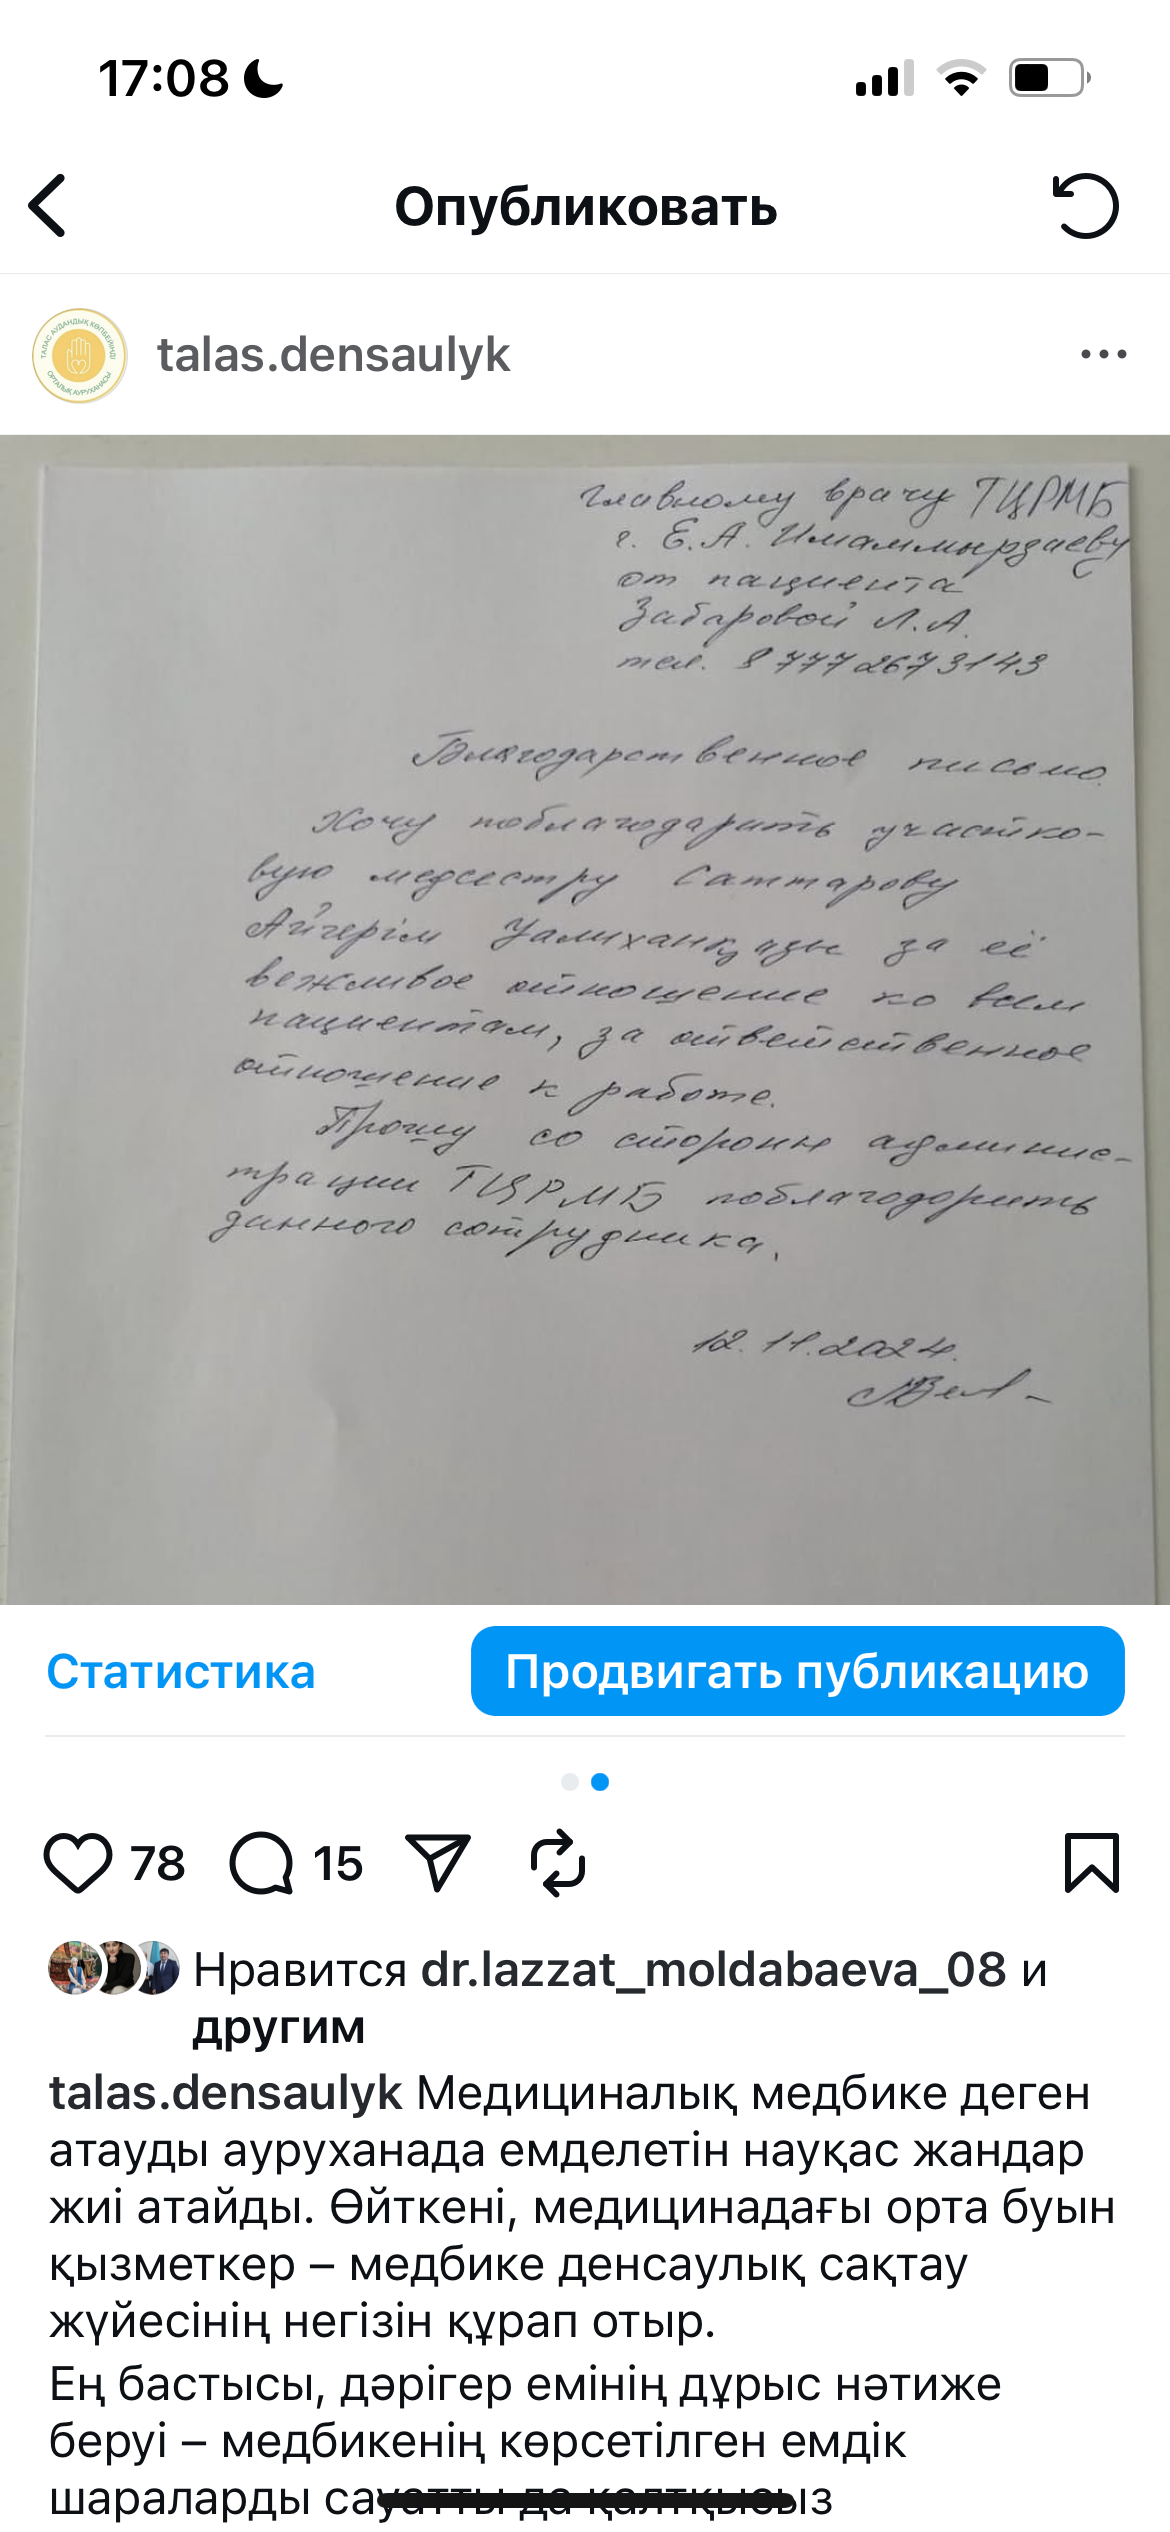 17:08
Опубликовать
ТАЛАС АУДАНДЫҚ КӨПБЕЙІНДІ
ОРТАЛЫҚ АУРУХАНАСЫ
talas.densaulyk
Главному врачу ТЦРМБ
г. Е.А. Имаммырзаеву
от пациента
Забаровой Л.А.
тел. 8 777 267 3143
Благодарственное письмо.
Хочу поблагодарить участко-
вую медсестру Саттарову
Айгерім Уалиханқызы за её
вежливое отношение ко всем
пациентам, за ответственное
отношение к работе.
Прошу со стороны админис-
трации ТЦРМБ поблагодорить
данного сотрудника.
12.11.2024.
Статистика
Продвигать публикацию
78
15
Нравится dr.lazzat_moldabaeva_08 и
другим
talas.densaulyk Медициналық медбике деген
атауды ауруханада емделетін науқас жандар
жиі атайды. Өйткені, медицинадағы орта буын
қызметкер – медбике денсаулық сақтау
жүйесінің негізін құрап отыр.
Ең бастысы, дәрігер емінің дұрыс нәтиже
беруі – медбикенің көрсетілген емдік
шараларды сауатты да қалтқысыз